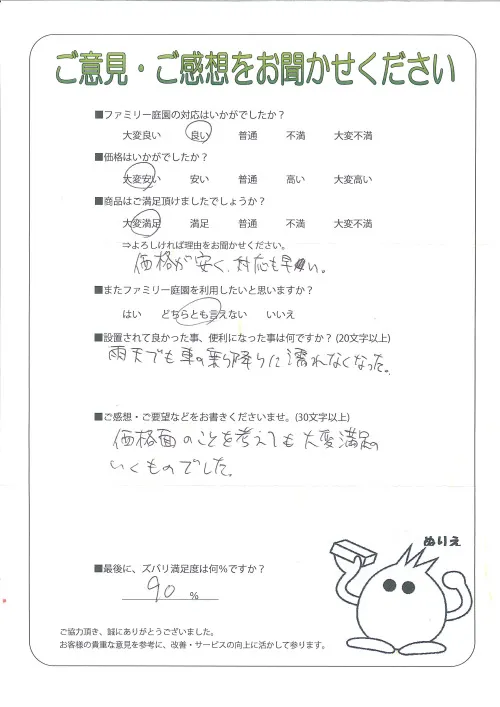 ご意見・ご感想をお聞かせください
■ファミリー庭園の対応はいかがでしたか？
大変良い 良い 普通 不満 大変不満
■価格はいかがでしたか？
大変安い 安い 普通 高い 大変高い
■商品はご満足頂けましたでしょうか？
大変満足 満足 普通 不満 大変不満
⇒よろしければ理由をお聞かせください。
価格が安く、対応も早い。
■またファミリー庭園を利用したいと思いますか？
はい どちらとも言えない いいえ
■設置されて良かった事、便利になった事は何ですか？(20文字以上)
雨天でも車の乗り降りに濡れなくなった。
■ご感想・ご要望などをお書きくださいませ。(30文字以上)
価格面のことを考えても大変満足の
いくものでした。
ぬりえ
■最後に、ズバリ満足度は何％ですか？
90 %
ご協力頂き、誠にありがとうございました。
お客様の貴重な意見を参考に、改善・サービスの向上に活かして参ります。